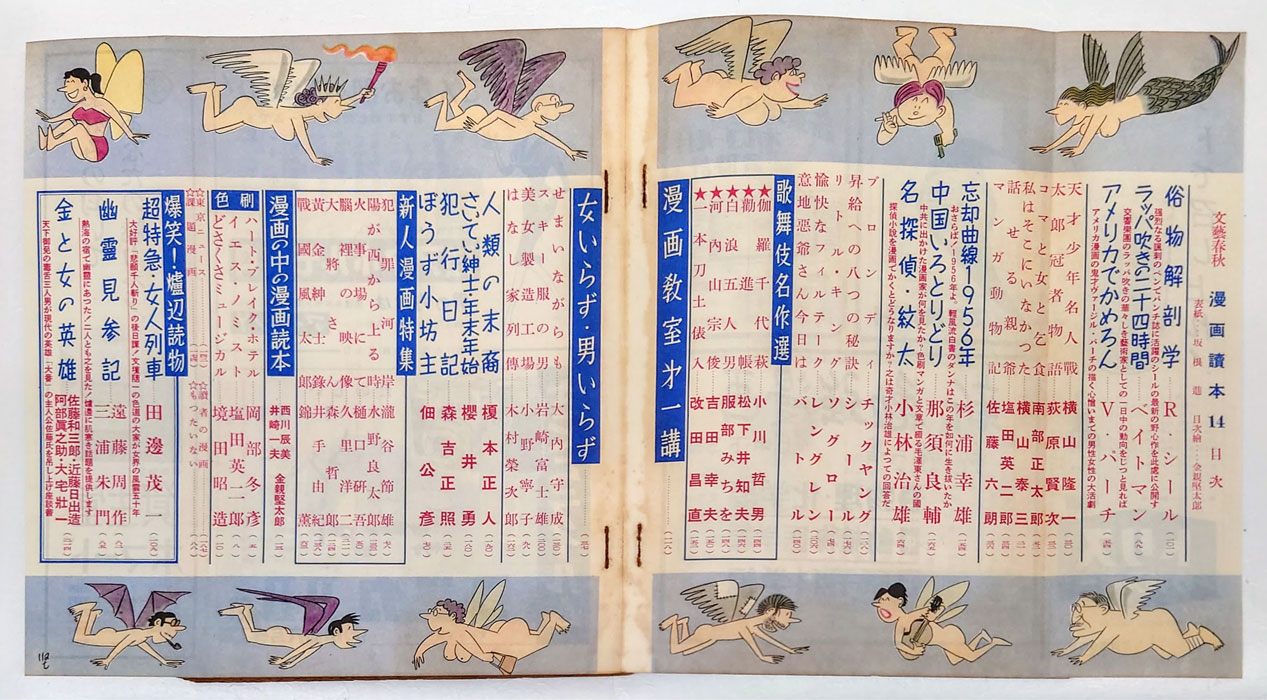 文藝春秋 漫画讀本14 目次
表紙…坂根進 目次繪…金親堅太郎
俗物解剖学 R・シール
強烈なる諷刺のペンでパンチ誌に活躍のシールの最新の野心作を此處に公開す
ラッパ吹きの二十四時間 ベイトマン
交響樂團のラッパ吹きの華々しき藝術家としての一日中の動向をじっと見れば
アメリカでかめろん V・パーチ
アメリカ漫画の鬼才ヴァージル・パーチの描く心憎いまでの男性女性の大活劇
天才少年名人戰 横山隆一
太郎冠者物語 荻原賢次
コマと女と子と乞食 南部正太郎
私はそこにいなかった 横山泰三
話せる親爺 塩田英二郎
マンガ動物記 佐藤六朗
忘却曲線1956年 杉浦幸雄
おさらば!1956年よ。輕風流白書のタンナはこの年を如何に生き抜いたか
中国いろとりどり 那須良輔
中共に出かけた漫画家が何を見たか?色刷マンガと文章で綴る毛澤東さんの國
名探偵・紋太 小林治雄
探偵小説を漫画でかくとどうなりますか?之は奇才小林治雄によっての回答だ
ブロンディ チックヤング
昇給への八つの秘訣 シール
リトル・キング ソグロー
愉快なフィルテーク レングレン
意地悪爺さん今日は バトル
歌舞伎名作選
★伽羅千代萩 小川哲男
★勸進帳 松下井知夫
★白浪五人男 服部みちを
★河内山宗俊 吉田幸夫
★一本刀土俵入 改田昌直
漫画教室才一講
女いらず・男いらず
せまいながらも 大内守成
スキー服の男 岩崎富士雄
美女製造工場 小大寧子
はなし家列傳 木村榮次郎
人類の末裔 榎本正人
さいてい紳士・年末年始 櫻井勇
犯行日記 森吉正照
ぼうず小坊主 佃公彦
新人漫画特集
犯罪河岸 瀧谷節雄
陽が西から上る時 水野良太郎
火事場にて 樋口研吾
腦裡の映像 久里洋二
大將さん 森哲郎
黄金紳士錄 井手由紀
戰我太郎 錦薫
漫画の中の漫画読本
西川辰美 金親堅太郎
井崎一夫
色刷
ハート・ブレイク・ホテル 岡部冬彦
イエス・ノミスト 塩田英二郎
どさくさミュージカル 境田昭造
☆東京ニュース ☆讀者の漫画
☆課題漫画 ☆もったいない
爆笑!爐辺読物
超特急・女人列車 田邊茂一
大好評「悲願千人斬り」の後日譚!文壇随一の色道の大家が女界の風雲五十年
幽靈見参記 遠藤周作 三浦朱門
熱海の宿で幽靈にあった!二人とも之を見た!爐邊に肌寒き話題を提供します
金と女の英雄 佐藤和三郎・近藤日出造 阿部眞之助・大宅壯一
天下御免の毒舌三人男が現代の英雄「大番」の主人公佐藤氏を吊し上げ座談書